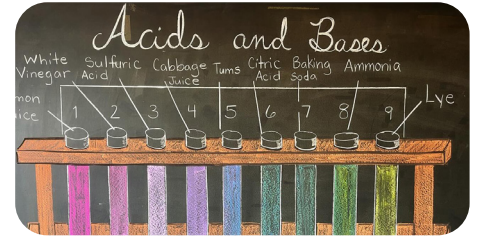 Acids and Bases
White Vinegar
Sulfuric Acid
Cabbage Juice
Tums
Citric Acid
Baking Soda
Ammonia
mon
ice
Lye
1 2 3 4 5 6 7 8 9